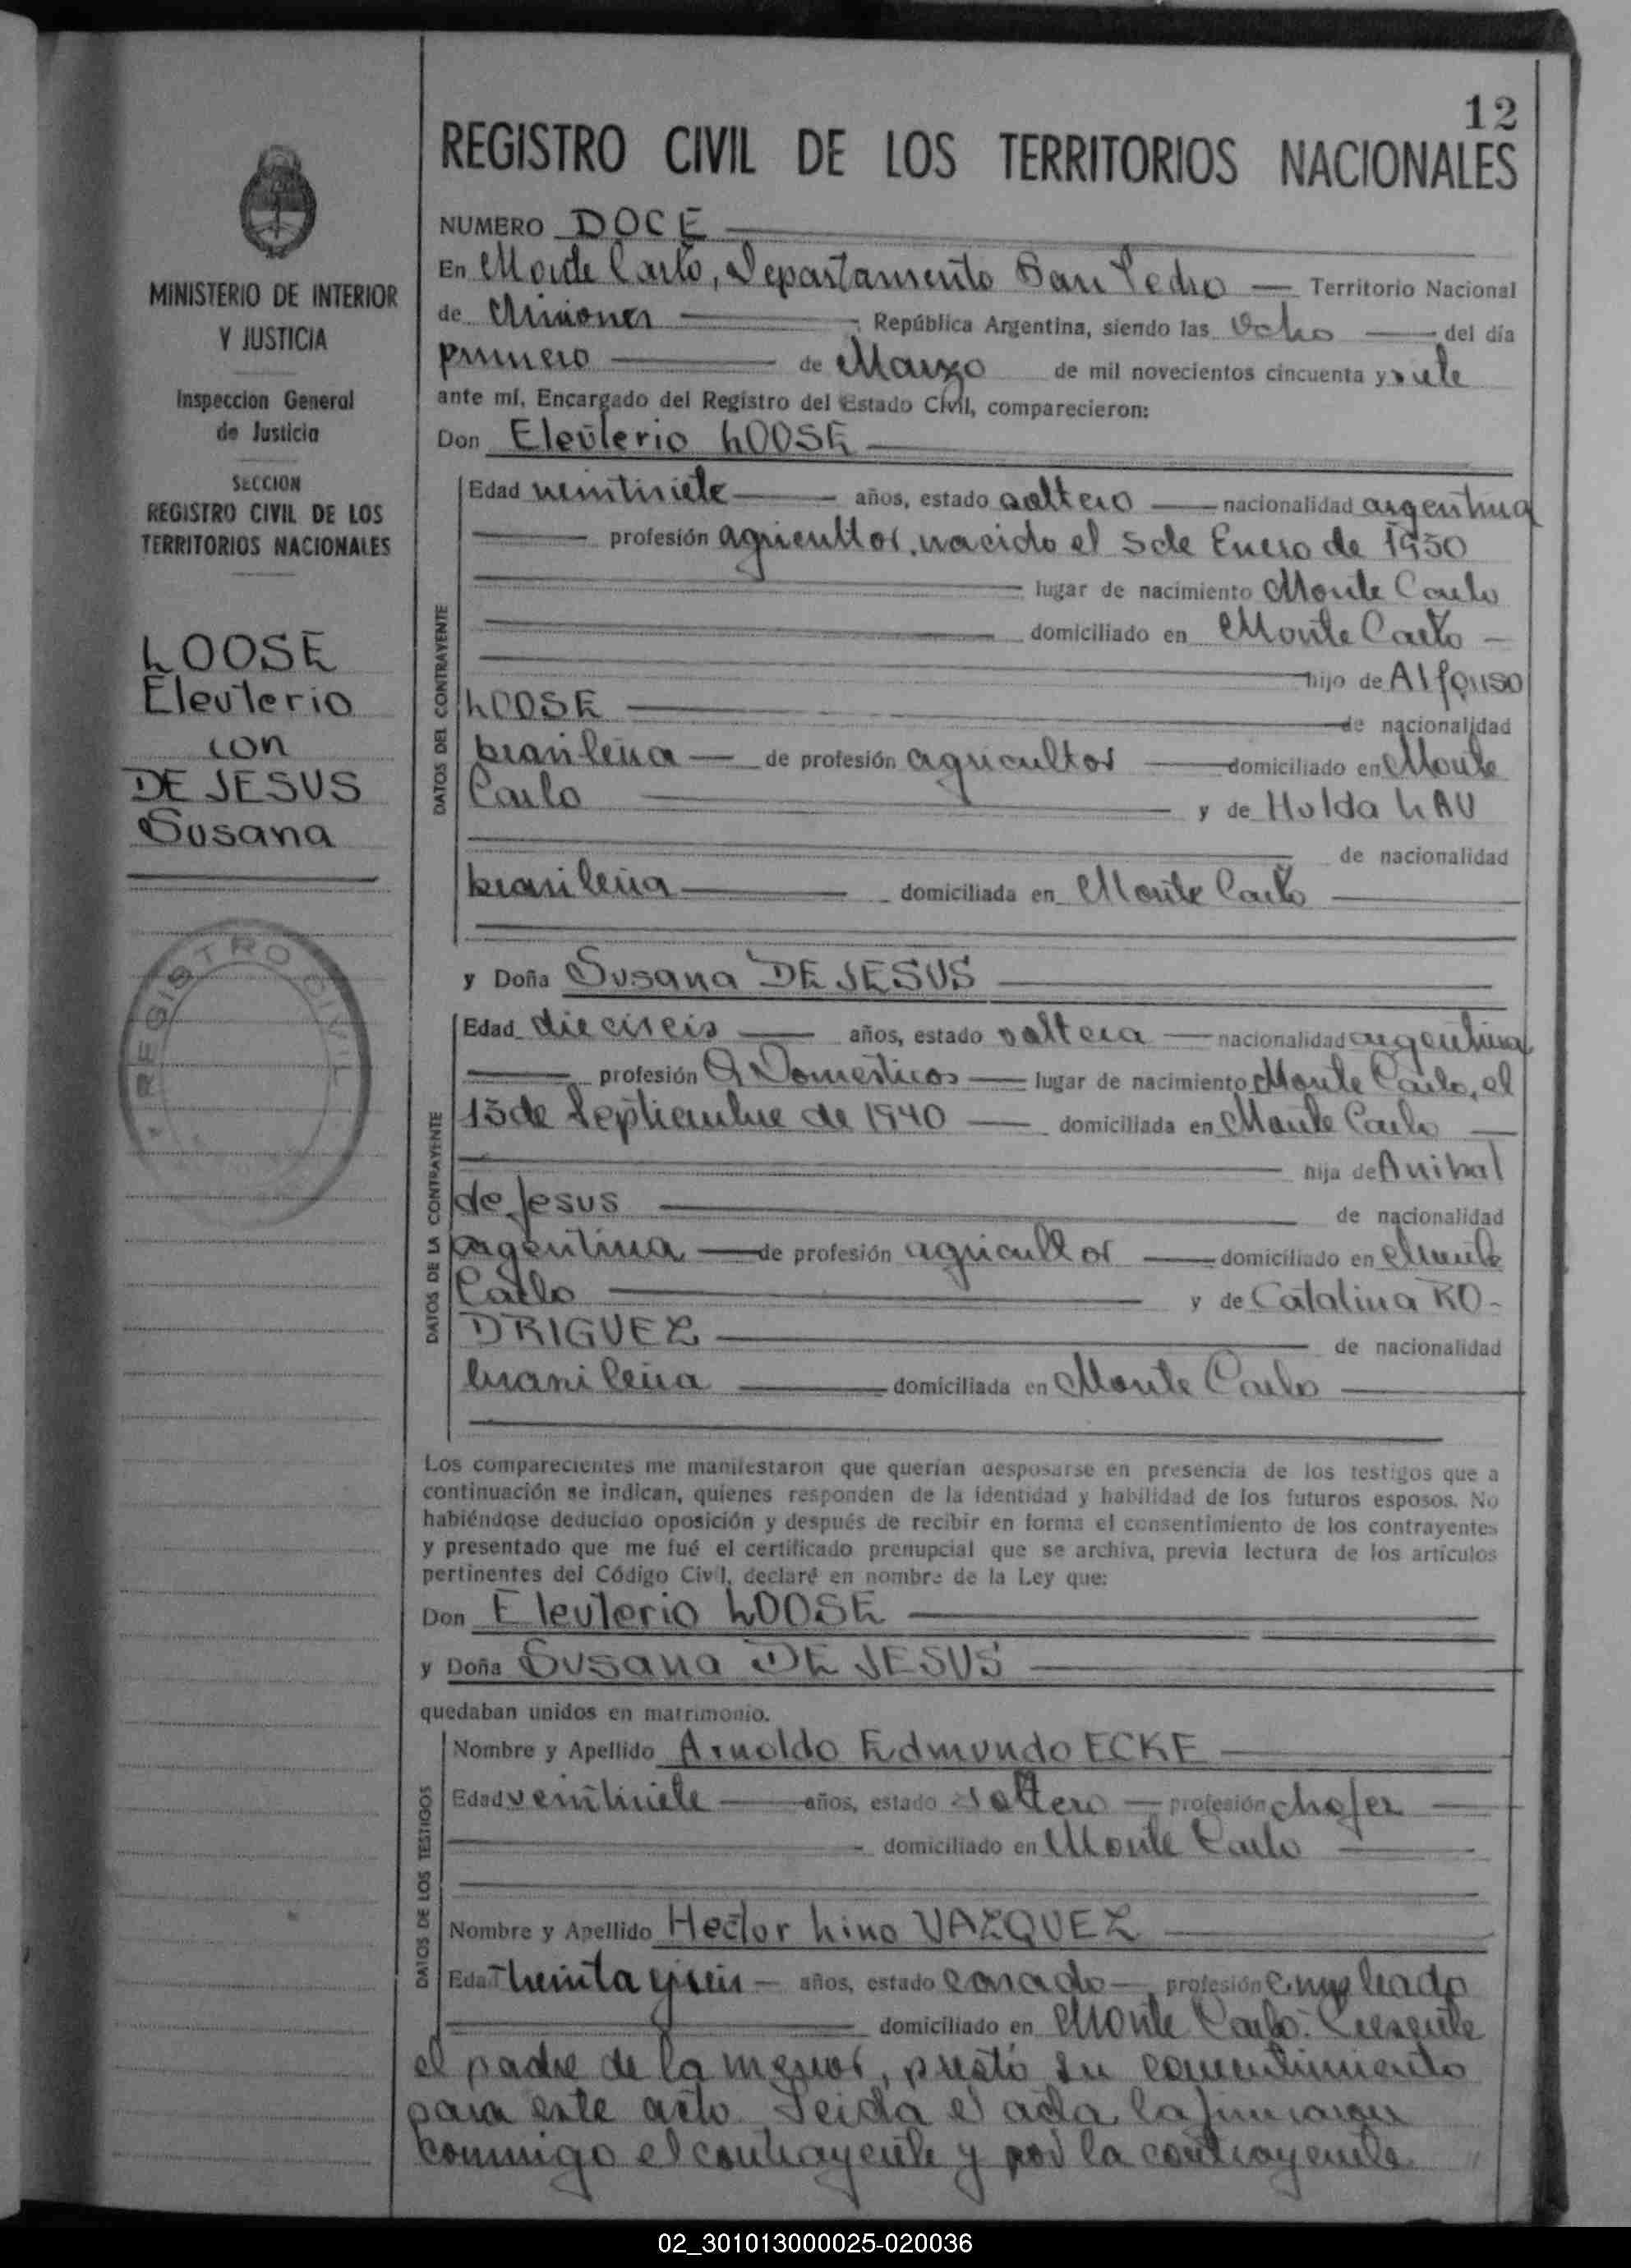 12
REGISTRO CIVIL DE LOS TERRITORIOS NACIONALES
MINISTERIO DE INTERIOR
Y JUSTICIA
Inspeccion General
de Justicia
SECCION
REGISTRO CIVIL DE LOS
TERRITORIOS NACIONALES
LOOSE
Eleuterio
con
DE JESUS
Susana
REGISTRO CIVIL
NUMERO DOCE
En Monte Carlo, Departamento San Pedro Territorio Nacional
de Misiones República Argentina, siendo las Ocho del día
primero de Marzo de mil novecientos cincuenta y siete
ante mí, Encargado del Registro del Estado Civil, comparecieron:
Don Eleuterio LOOSE
DATOS DEL CONTRAYENTE
Edad veintisiete años, estado soltero nacionalidad argentina
profesión agricultor, nacido el 5 de Enero de 1930
lugar de nacimiento Monte Carlo
domiciliado en Monte Carlo
hijo de Alfonso
LOOSE de nacionalidad
brasileña de profesión agricultor domiciliado en Monte
Carlo y de Hulda LAU
de nacionalidad
brasileña domiciliada en Monte Carlo
y Doña Susana DE JESUS
DATOS DE LA CONTRAYENTE
Edad dieciseis años, estado soltera nacionalidad argentina
profesión Q Domesticos lugar de nacimiento Monte Carlo, el
13 de Septiembre de 1940 domiciliada en Monte Carlo
hija de Anibal
de Jesus de nacionalidad
argentina de profesión agricultor domiciliado en Monte
Carlo y de Catalina RO-
DRIGUEZ de nacionalidad
brasileña domiciliada en Monte Carlo
Los comparecientes me manifestaron que querían desposarse en presencia de los testigos que a
continuación se indican, quienes responden de la identidad y habilidad de los futuros esposos. No
habiéndose deducido oposición y después de recibir en forma el consentimiento de los contrayentes
y presentado que me fué el certificado prenupcial que se archiva, previa lectura de los artículos
pertinentes del Código Civil, declaré en nombre de la Ley que:
Don Eleuterio LOOSE
y Doña Susana DE JESUS
quedaban unidos en matrimonio.
DATOS DE LOS TESTIGOS
Nombre y Apellido Arnoldo Edmundo ECKE
Edad veintisiete años, estado soltero profesión chofer
domiciliado en Monte Carlo
Nombre y Apellido Hector Lino VAZQUEZ
Edad treinta y seis años, estado casado profesión empleado
domiciliado en Monte Carlo. Presente
el padre de la menor, prestó su consentimiento
para este acto. Leida el acta, la firmaron
conmigo el contrayente y por la contrayente
02_301013000025-020036